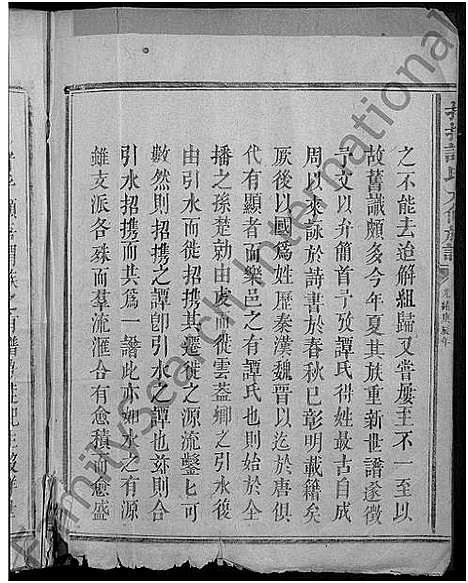 之不能去迨解組歸又嘗屢至不一至以
故舊識頗多今年夏其族重新世譜遂徵
予文以弁簡首予攷譚氏得姓最古自成
周以來詠於詩書於春秋已彰明載籍矣
厥後以國爲姓歷秦漢魏晉以迄於唐俱
代有顯者而樂邑之有譚氏也則始於全
播之孫楚勍由虔而徙雲益鄉之引水復
由引水而徙招携其遷徙之源流鑿匕可
數然則招携之譚卽引水之譚也茲則合
引水招携而其爲一譜此亦如水之有源
雖支派各殊而羣流滙合有愈積而愈盛
FamilySearch International